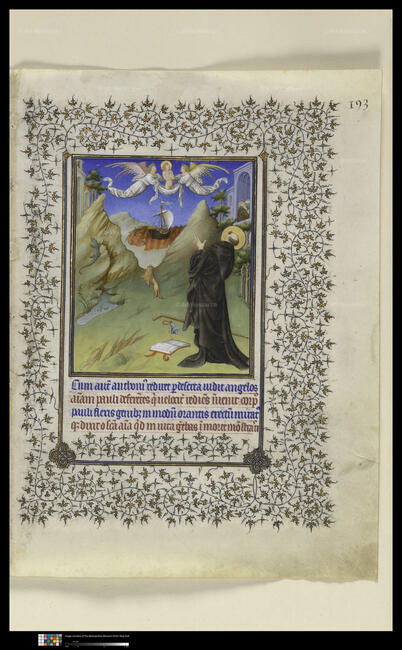 193
Cum aut̄ anthoni⁹ rediret p deserta vidit angelos
aīam pauli deferētes qui velocit̄ rediēs inuenit corp⁹
pauli flexis genib; in modū orantis erectū
o scā aīa qd in vita gerebas ī morte
Image courtesy of The Metropolitan Museum of Art, New York